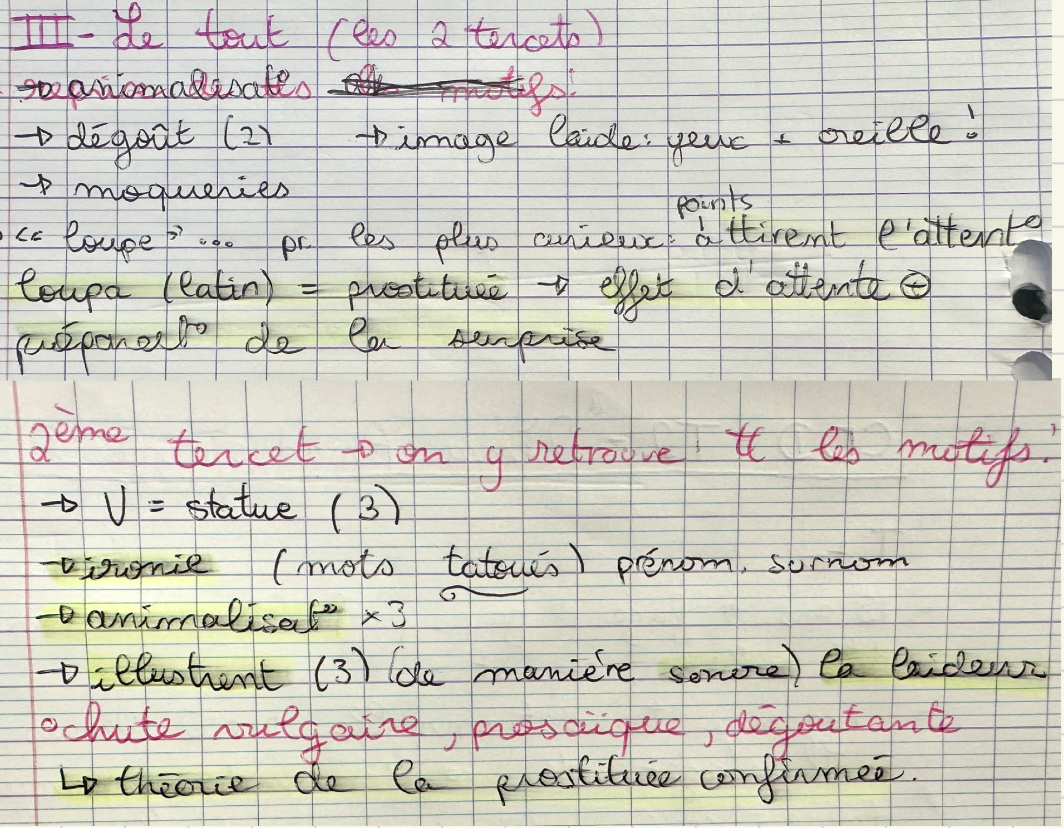 III - Le tout (les 2 tercets)
→ animalisat°s motifs:
→ dégoût (2) → image laide: yeux + oreille !
→ moqueries
points
"loupe" ... pr les plus curieux: attirent l'attent°
loupa (latin) = prostituée → effet d'attente ⊕
préparat° de la surprise
2ème tercet → on y retrouve tt les motifs:
→ V = statue (3)
→ ironie (mots tatoués) prénom, surnom
→ animalisat° x3
→ illustrent (3) (de manière sonore) la laideur
chute vulgaire, prosaïque, dégoutante
↳ théorie de la prostituée confirmée.